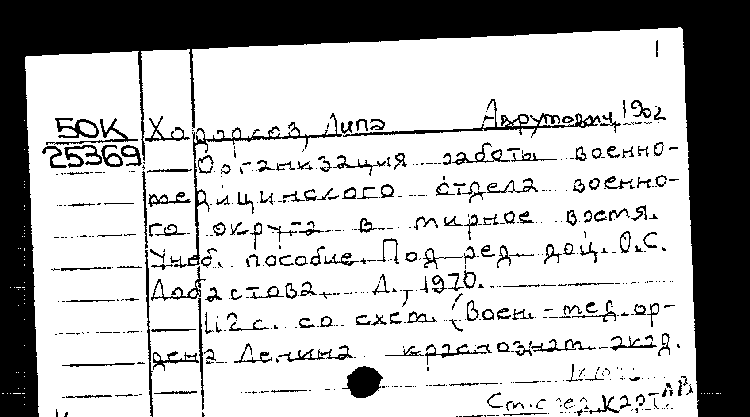 1
50К Ходорков, Липа Аврутович, 1902
25369 Организация работы военно-
медицинского отдела военно-
го округа в мирное время.
Учеб. пособие. Под ред. доц. О.С.
Лобастова. Л., 1970.
112 с. со схем. (Воен.-мед. ор-
дена Ленина краснознам. акад.
См. след. карт.